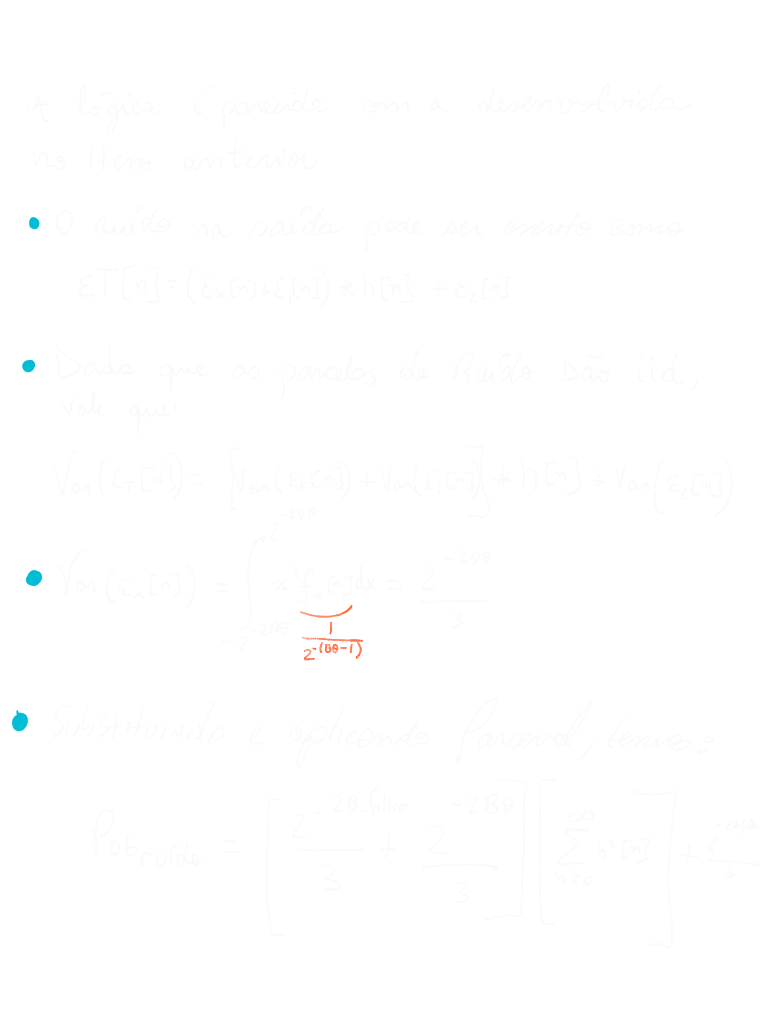 A lógica é parecida com a desenvolvida
no item anterior
• O Ruído na saída pode ser escrito como
εT[n] = (εx[n]+ε1[n]) * h[n] + ε2[n]
• Dado que as parcelas de Ruído são iid,
vale que
Var(εT[n]) = [Var(εx[n]) + Var(ε1[n])] * h[n] + Var(ε2[n])
• Var(εx[n]) = ∫ x² fx[x] dx = 2^-2Bθ / 3
1 / 2^-(Bθ-1)
• Substituindo e aplicando Parseval, temos:
Pot ruído = [2^-2B_filtro / 3 + 2^-2Bθ / 3] [∑ n=0 ∞ h²[n]] +